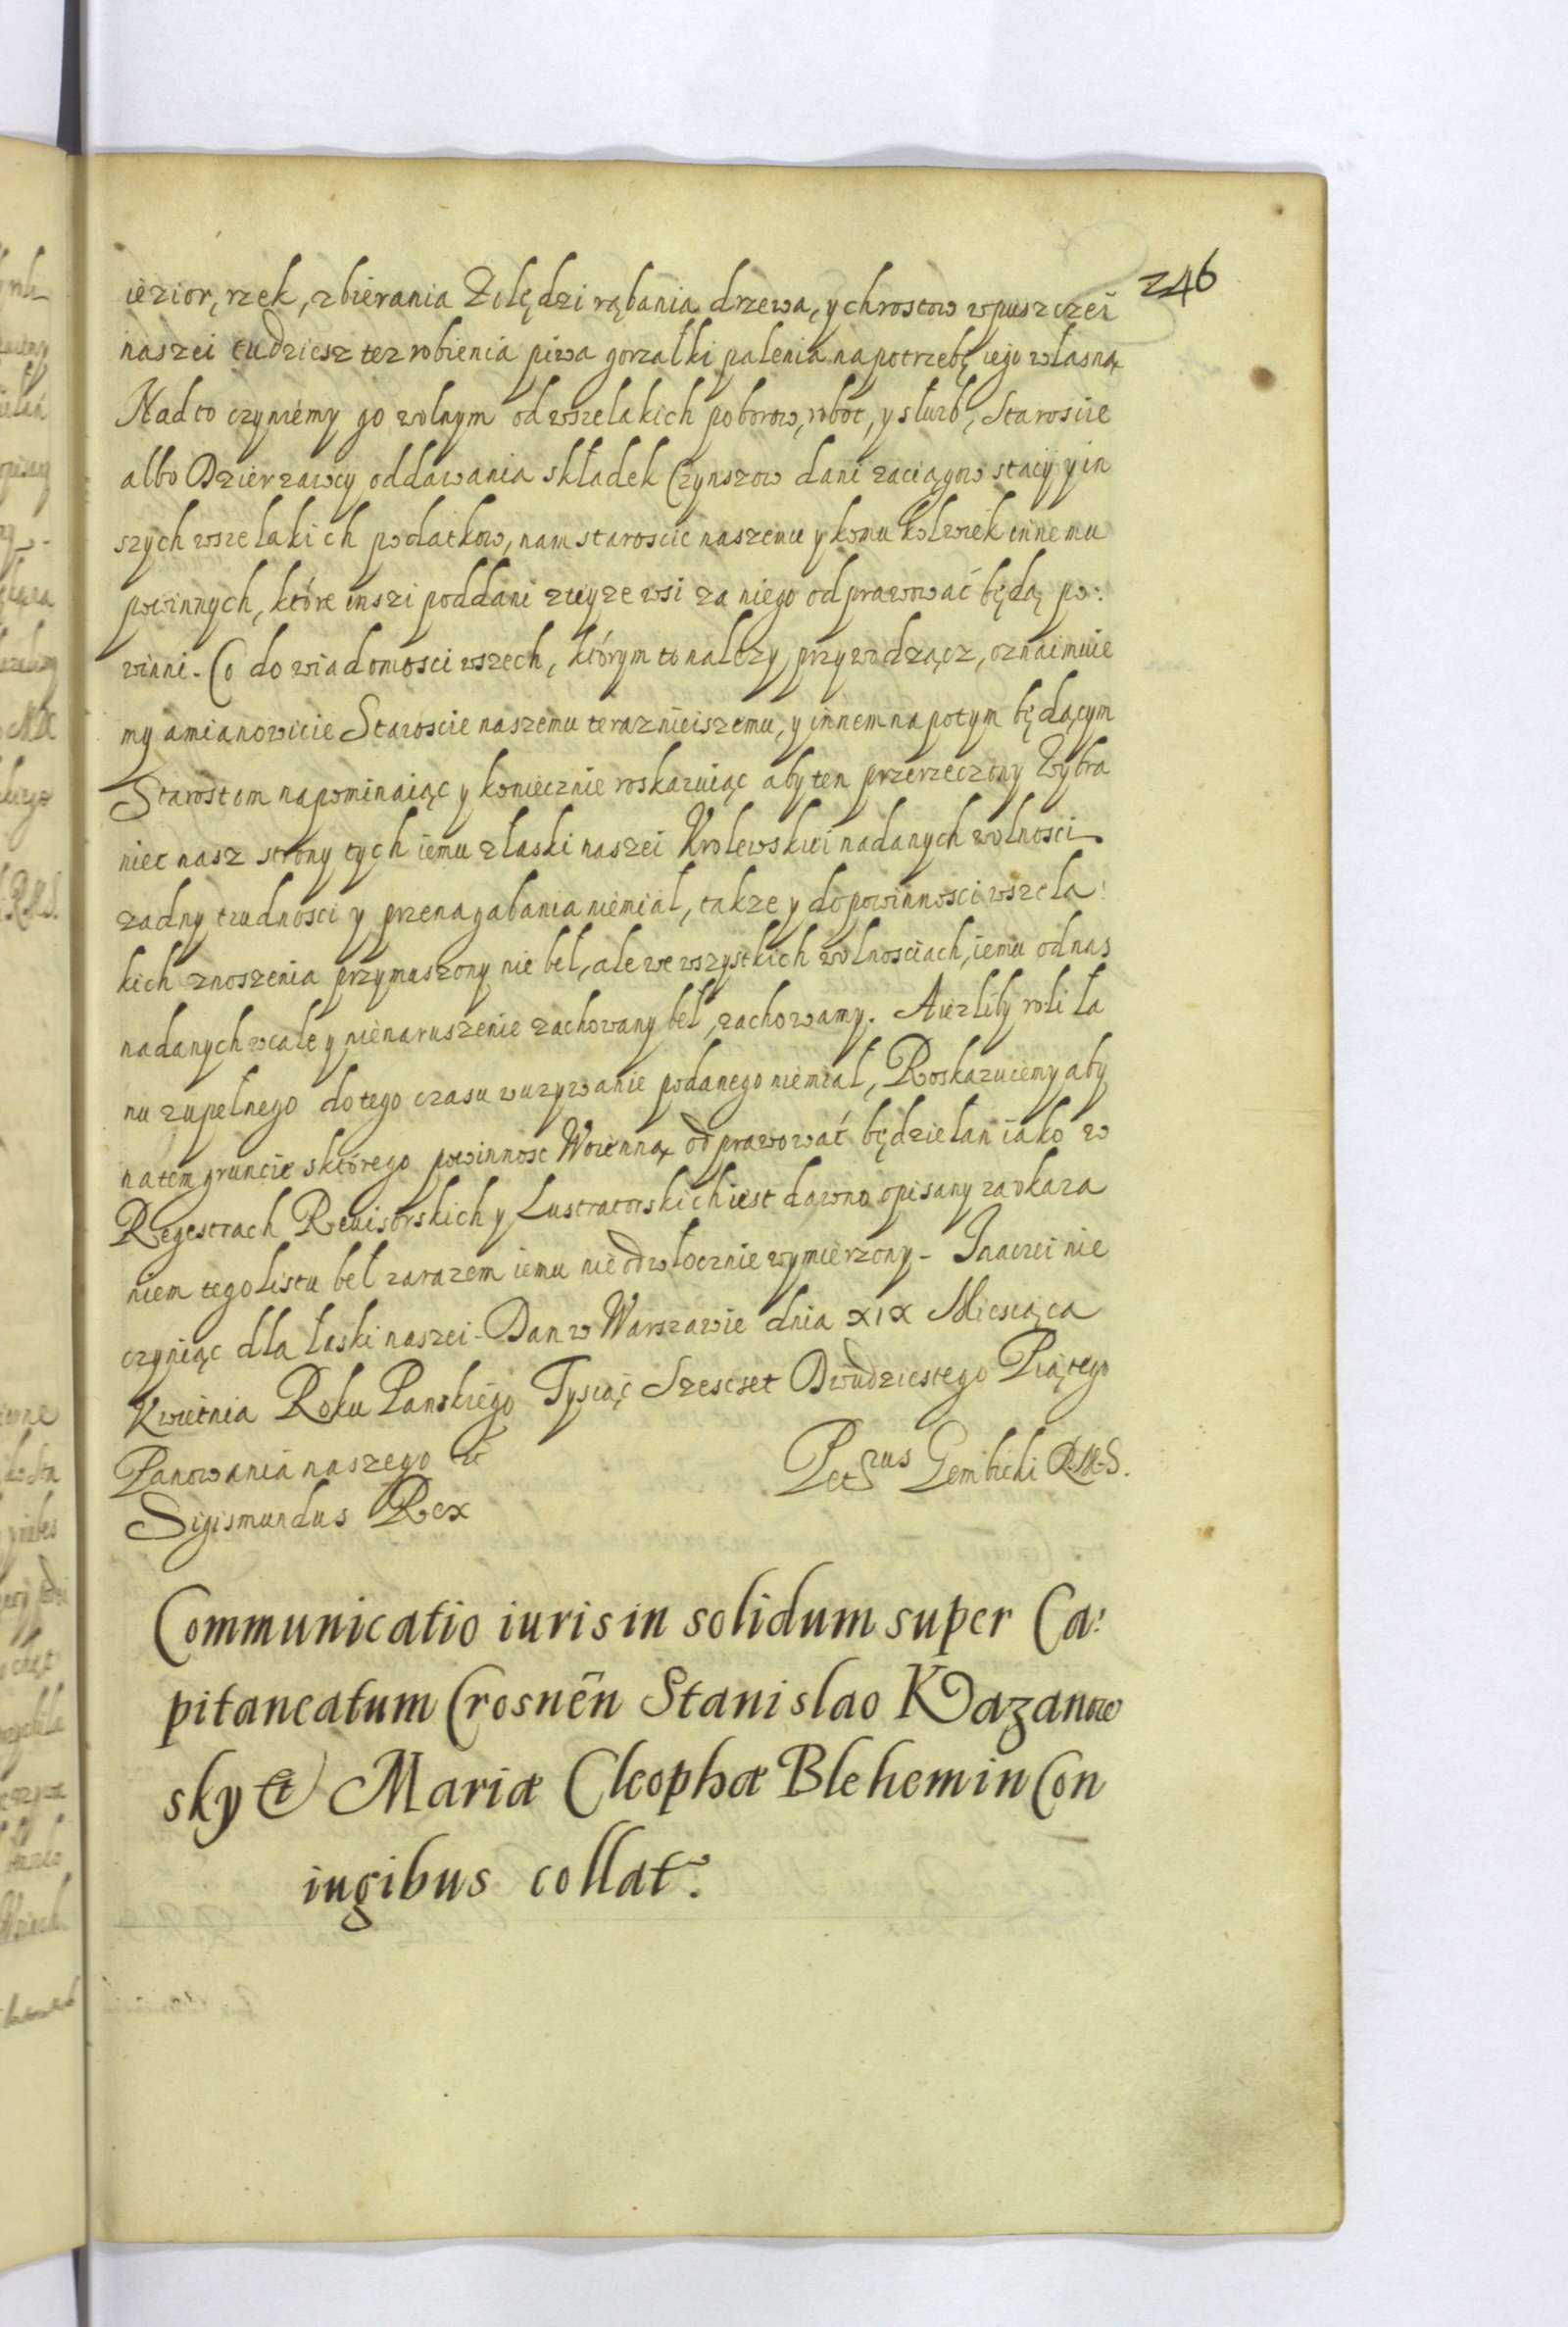 246
iezior, rzek, zbierania Zołędzi rąbania drzewa, y chrostow w puszczei
naszei tudziesz tez robienia piwa gorzałki palenia na potrzebę iego własną
Nad to czyniemy go wolnym od wszelakich poborow, robot, y słuzb, Staroscie
albo Dzierzawcy oddawania składek Czynszow dani zaciągow stacij y in
szych wszelakich podatkow, nam staroscie naszemu y komu kolwiek innemu
powinnych, które inszi poddani zteyze wsi za niego odprawować będą po:
winni. Co do wiadomosci wszech, którym to nalezy przywodząc, oznaimuie
my a mianowicie Staroscie naszemu teraznieiszemu, y innem napotym będącym
Starostom napominaiąc y koniecznie roskazuiąc aby ten przerzeczony Wybra
niec nasz strony tych iemu z łaski naszei Krolewskiei nadanych wolnosci
zadny trudnosci y przenagabania niemiał, takze y do powinnosci wszela:
kich znoszenia przymuszony nie beł, ale we wszystkich wolnosciach, iemu od nas
nadanych wcale y nienaruszenie zachowany beł, zachowamy. A iezliby roli ła
nu zupełnego do tego czasu w uzywanie podanego niemiał, Roskazuiemy aby
na tem gruncie s którego powinnosc Woienną odprawować będzie łan iako w
Regestrach Reuisorskich y Lustratorskich iest dawno opisany za okaza
niem tego listu beł zarazem iemu nie odwłocznie wymierzony - Inaczei nie
czyniąc dla łaski naszei - Dan w Warszawie dnia XIX Miesiąca
Kwietnia Roku Panskiego Tysiąć Szescset Dwudziestego Piątego
Panowania naszego etc
Petrus Gembicki R.M.S.
Sigismundus Rex
Communicatio iuris in solidum super Ca:
pitaneatum Crosnēn Stanislao Kazanow
sky et Mariæ Cleophæ Blehemin Con
iugibus collat.